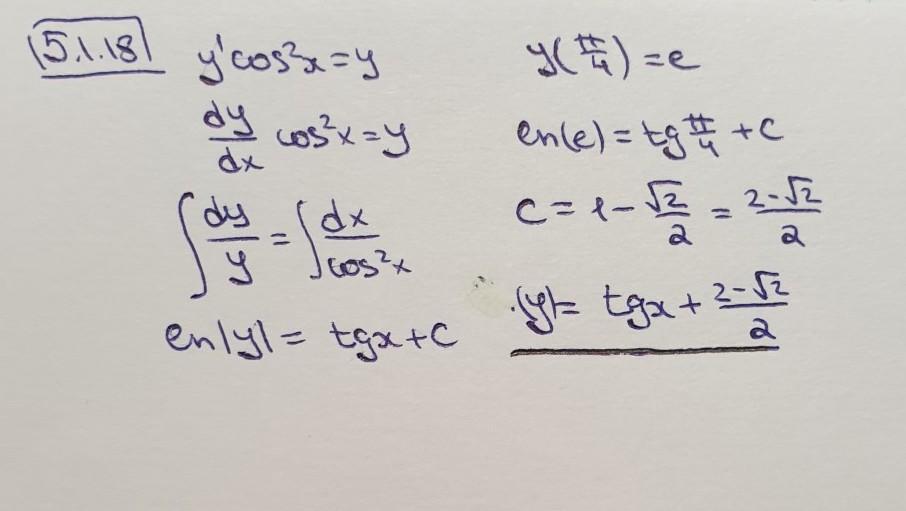 5.1.18
y' cos²x = y
dy/dx cos²x = y
∫ dy/y = ∫ dx/cos²x
ln|y| = tgx + C
y(π/4) = e
ln(e) = tg π/4 + C
C = 1 - √2/2 = (2-√2)/2
|y| = tgx + (2-√2)/2